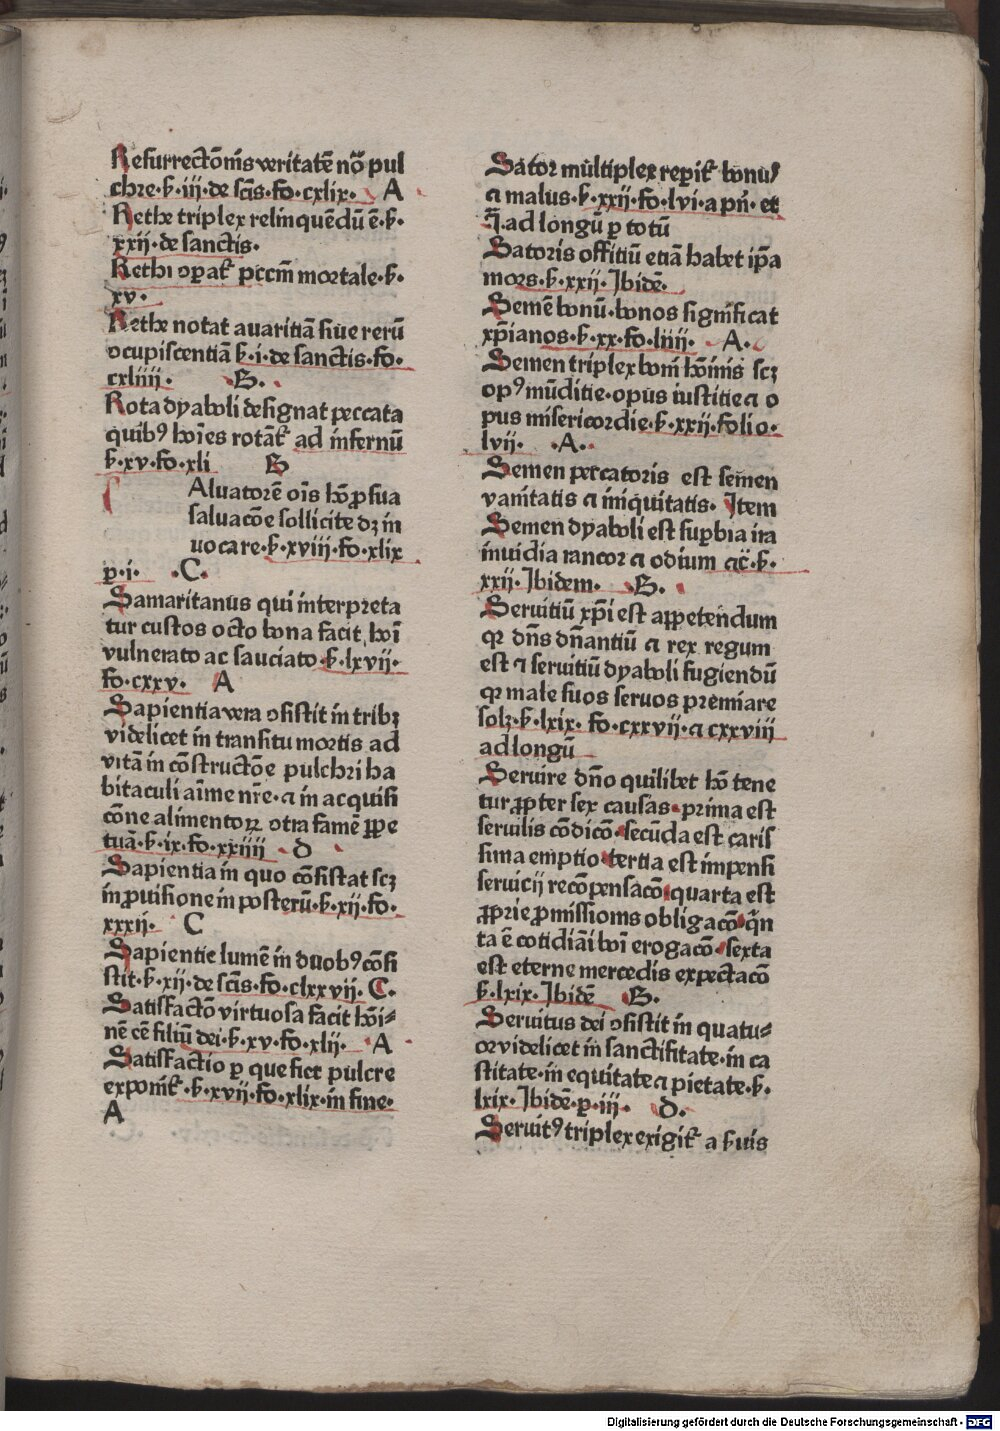 Resurrectōnis veritatē nō pul
chre · ẜ · iij · de scīs · fo · cxlix · A
Rethe triplex relinquēdū ē · ẜ ·
xxij · de sanctis ·
Rethi opat᷑ pccm̄ mortale · ẜ ·
xv ·
Rethe notat avaritiā siue rerū
ↄcupiscentiā ẜ · i · de sanctis · fo ·
cxliiij · B ·
Rota dyaboli designat peccata
quibꝰ hoīes rotāt᷑ ad infernū
ẜ · xv · fo · xli B
Aluatorē oīs hō ꝓ sua
saluacōe sollicite dꝫ in
uocare · ẜ · xviii · fo · xlix
p · i · C ·
Samaritanus qui interpreta
tur custos octo bona facit hoī
vulnerato ac sauciato · ẜ · lxvij ·
fo · cxxv · A
Sapientia vera ↄsistit in tribꝫ
videlicet in transitu mortis ad
vitā in cōstructōe pulchri ha
bitaculi aīme nr̄e · ⁊ in acquisi
cōne alimentoꝝ ↄtra famē ꝑpe
tuā · ẜ · ix · fo · xxiiij · D
Sapientia in quo cōsistat scꝫ
in ꝓuisione in posterū · ẜ · xij · fo ·
xxxij · C
Sapientie lumē in duobꝰ cōsi
stit · ẜ · xij · de scīs · fo · clxxvij · C ·
Satisfactō virtuosa facit hōi⸗
nē cē filiū dei · ẜ · xv · fo · xlij · A
Satisfactio ꝑ que fiet pulcre
exponit᷑ · ẜ · xvij · fo · xlix · in fine ·
A
Sator multiplex reꝑit᷑ bonuſ
⁊ malus · ẜ · xxij · fo · lvi · a pn̄ · et
q̄ · ad longū ꝑ totū
Satoris offitiū etiā habet ip̄a
mors · ẜ · xxij · Ibidē ·
Semē bonū · bonos significat
xp̄ianos · ẜ · xx · fo · liiij · A ·
Semen triplex boni hōinis scꝫ
opꝰ mūditie · opus iustitie ⁊ o
pus misericordie · ẜ · xxij · folio ·
lvij · A ·
Semen peccatoris est semen
vanitatis ⁊ iniquitatis · Item
Semen dyaboli est suꝑbia ira
inuidia rancor ⁊ odium ⁊c̄ · ẜ ·
xxij · Ibidem · B ·
Seruitiū xp̄i est appetendum
qꝛ dn̄s dn̄antiū ⁊ rex regum
est ⁊ seruitiū dyaboli fugiendū
qꝛ male suos seruos premiare
solꝫ · ẜ · lxix · fo · cxxvij · ⁊ cxxviij
ad longū
Seruire dn̄o quilibet hō tene
tur ꝓpter sex causas · prima est
seruilis cōdicō · secūda est caris
sima emptio · tertia est impensi
seruicij recōpensacō · quarta est
ꝓprie ꝓmissionis obligacō · q̄n
ta ē cotidiāi boī erogacō · sexta
est eterne mercedis expectacō
ẜ · lxix · Ibidē B ·
Seruitus dei ↄsistit in quatu⸗
or videlicet in sanctifitate · in ca
stitate · in equitate ⁊ pietate · ẜ ·
lxix · Ibidē · p · iij · D ·
Seruitꝰ triplex exigit᷑ a ẜuis
Digitalisierung gefördert durch die Deutsche Forschungsgemeinschaft - DFG